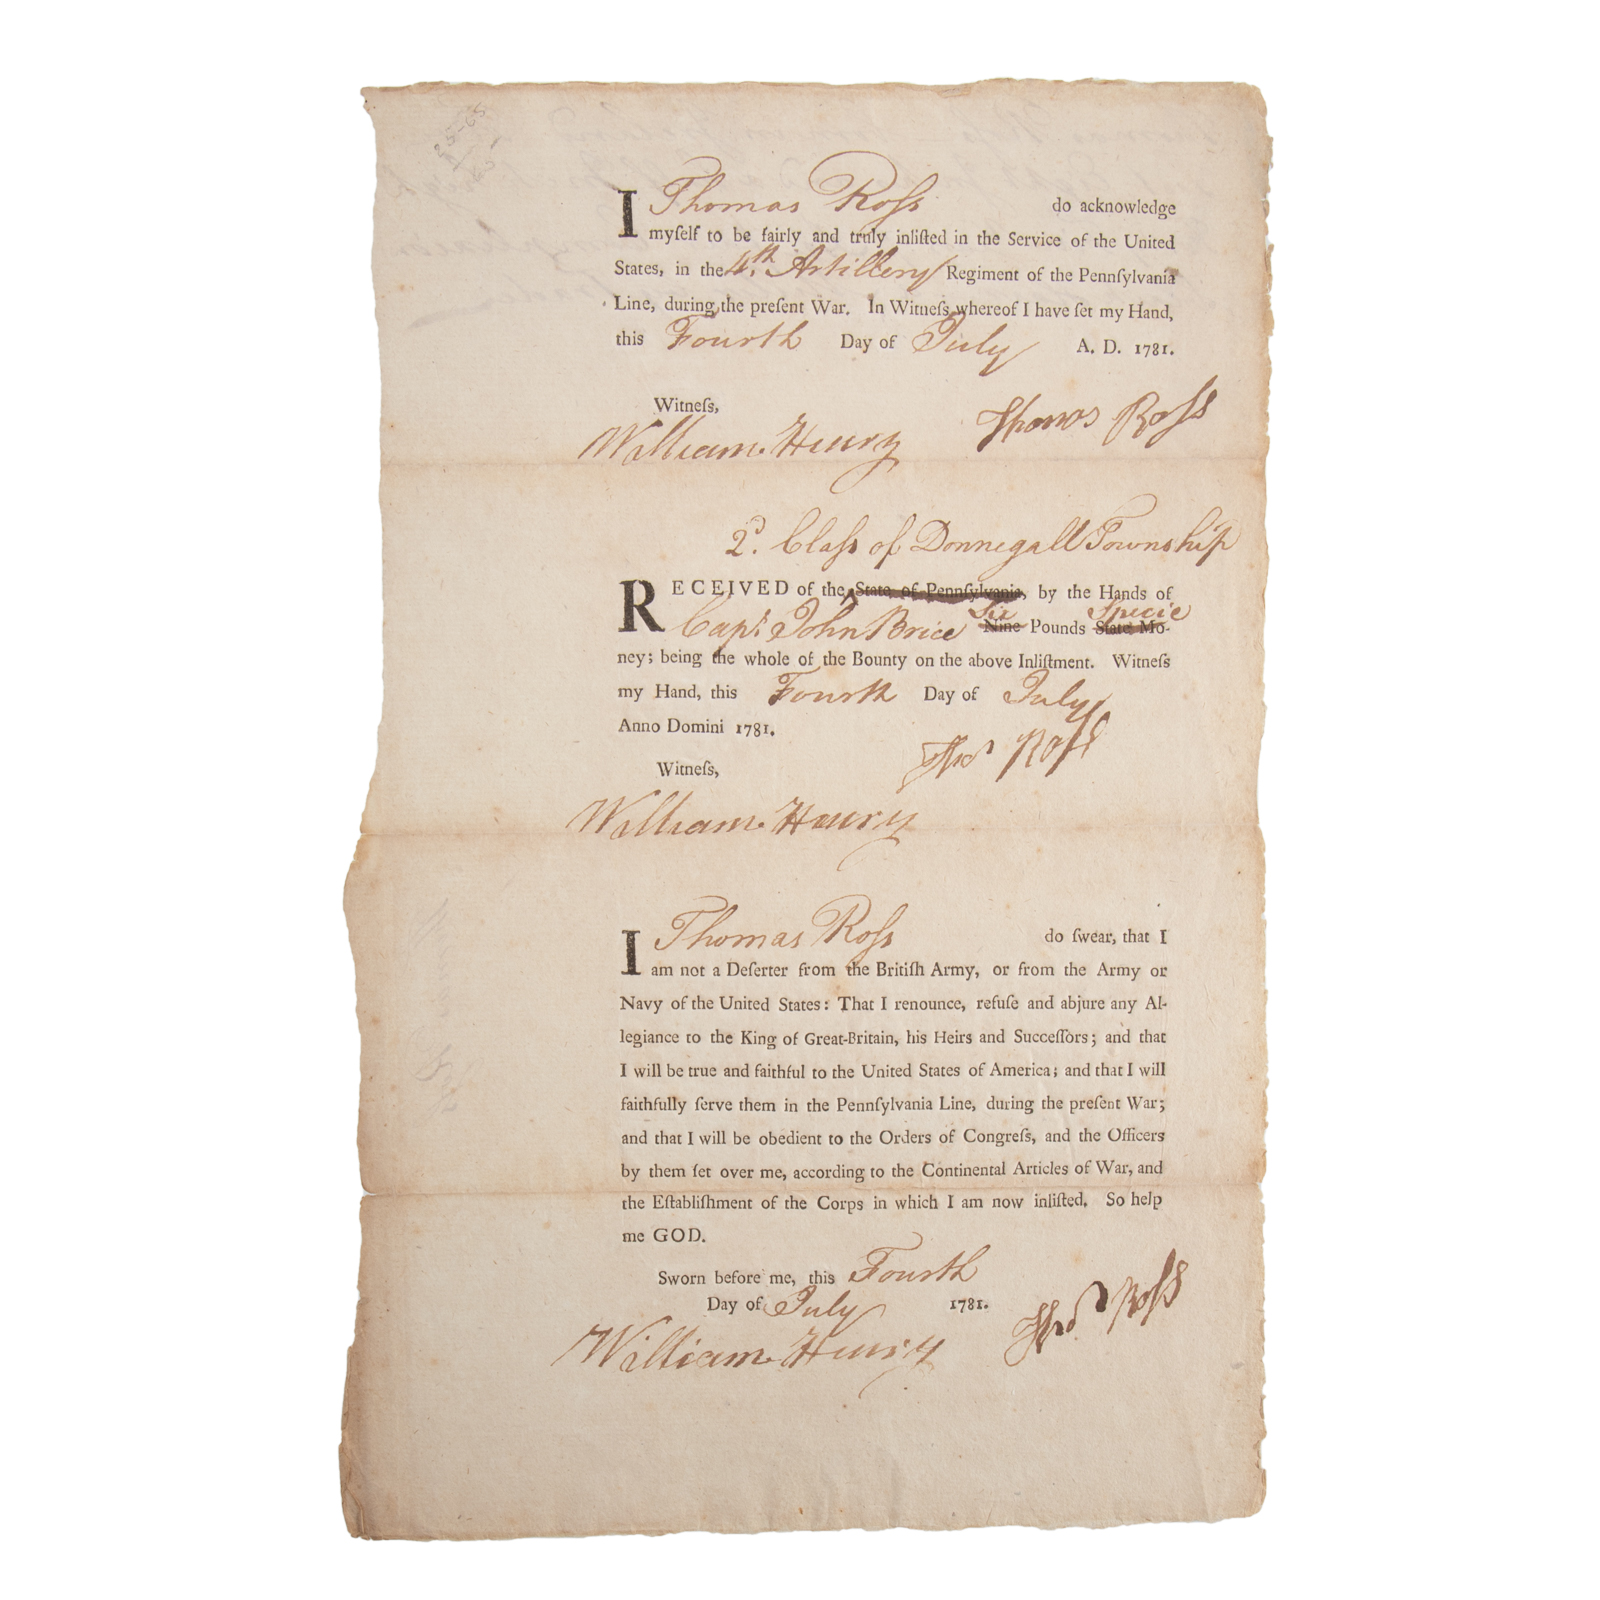 I Thomas Roſs do acknowledge
myſelf to be fairly and truly inliſted in the Service of the United
States, in the 4.th Artillery Regiment of the Pennſylvania
Line, during the preſent War. In Witneſs whereof I have ſet my Hand,
this Fourth Day of July A. D. 1781.
Witneſs,
William Henry Thomas Roſs
2d. Claſs of Donnegall Township
RECEIVED of the ^ State of Pennſylvania, by the Hands of
Six Specie
Capt. John Brice Nine Pounds State Mo-
ney; being the whole of the Bounty on the above Inliſtment. Witneſs
my Hand, this Fourth Day of July
Anno Domini 1781.
Thos Roſs
Witneſs,
William Henry
I Thomas Roſs do ſwear, that I
am not a Deſerter from the Britiſh Army, or from the Army or
Navy of the United States: That I renounce, refuſe and abjure any Al-
legiance to the King of Great-Britain, his Heirs and Succeſſors; and that
I will be true and faithful to the United States of America; and that I will
faithfully ſerve them in the Pennſylvania Line, during the preſent War;
and that I will be obedient to the Orders of Congreſs, and the Officers
by them ſet over me, according to the Continental Articles of War, and
the Eſtabliſhment of the Corps in which I am now inliſted. So help
me GOD.
Sworn before me, this Fourth
Day of July 1781.
William Henry Thos Roſs